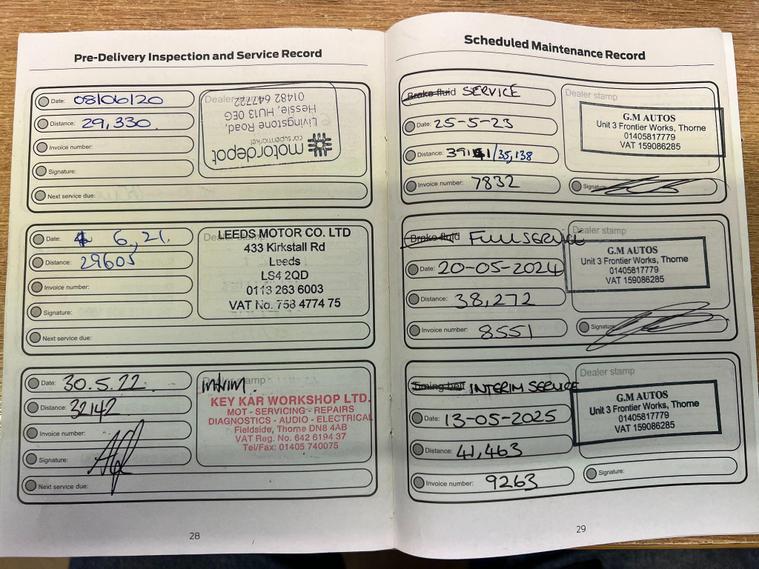 Pre-Delivery Inspection and Service Record
Date: 08/06/20
Distance: 29,330
Invoice number:
Signature:
Next service due:
Dealer stamp
motordepot
car supermarket
Livingstone Road,
Hessle, HU13 0EG
01482 647722
Date: 6,21.
Distance: 29605
Invoice number:
Signature:
Next service due:
LEEDS MOTOR CO. LTD
433 Kirkstall Rd
Leeds
LS4 2QD
0113 263 6003
VAT No. 758 4774 75
Date: 30.5.22
Distance: 32142
Invoice number:
Signature:
Next service due:
interim.
KEY KAR WORKSHOP LTD.
MOT - SERVICING - REPAIRS
DIAGNOSTICS - AUDIO - ELECTRICAL
Fieldside, Thorne DN8 4AB
VAT Reg. No. 642 6194 37
Tel/Fax: 01405 740075
28
Scheduled Maintenance Record
Brake fluid SERVICE
Date: 25-5-23
Distance: 35,138
Invoice number: 7832
Dealer stamp
G.M AUTOS
Unit 3 Frontier Works, Thorne
01405817779
VAT 159086285
Signature:
Brake fluid FULL SERVICE
Date: 20-05-2024
Distance: 38,272
Invoice number: 8551
Dealer stamp
G.M AUTOS
Unit 3 Frontier Works, Thorne
01405817779
VAT 159086285
Signature:
Timing belt INTERIM SERVICE
Date: 13-05-2025
Distance: 41,463
Invoice number: 9263
Dealer stamp
G.M AUTOS
Unit 3 Frontier Works, Thorne
01405817779
VAT 159086285
Signature:
29